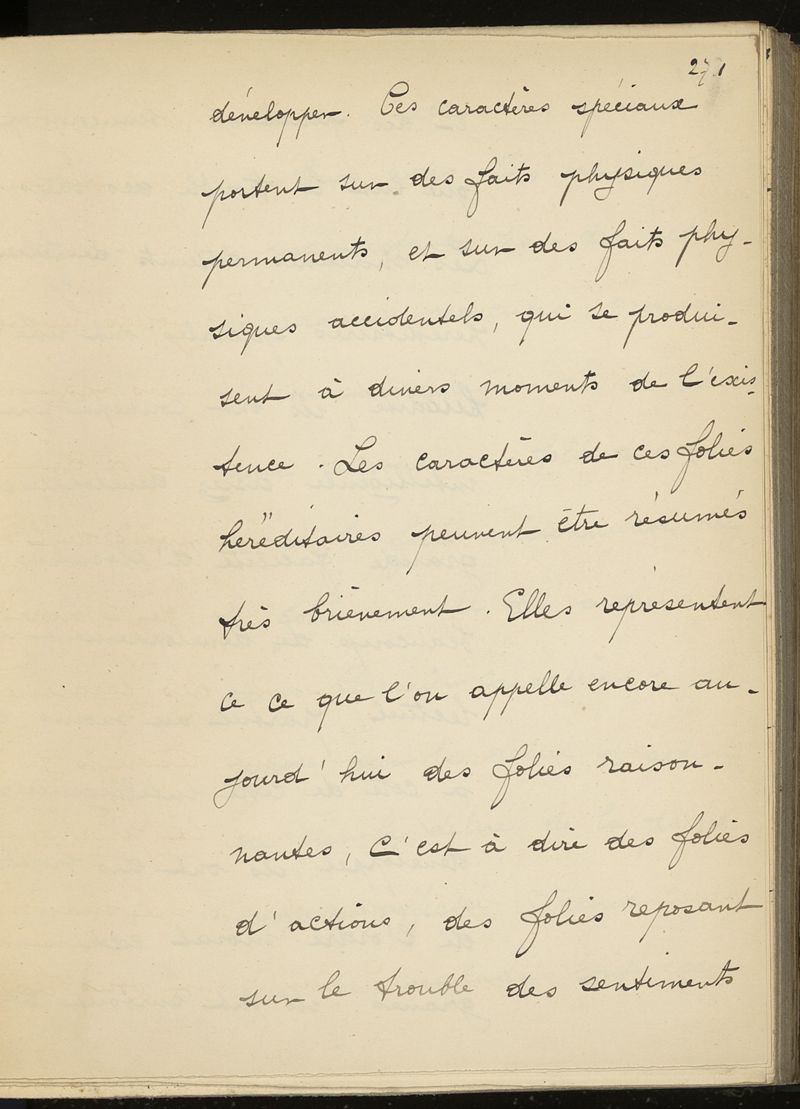 271
développer. Ces caractères spéciaux
portent sur des faits physiques
permanents, et sur des faits phy-
siques accidentels, qui se produi-
sent à divers moments de l'exis-
tence. Les caractères de ces folies
héréditaires peuvent être résumés
très brièvement. Elles représentent
ce ce que l'on appelle encore au-
jourd'hui des folies raison-
nantes, C'est à dire des folies
d'actions, des folies reposant
sur le trouble des sentiments